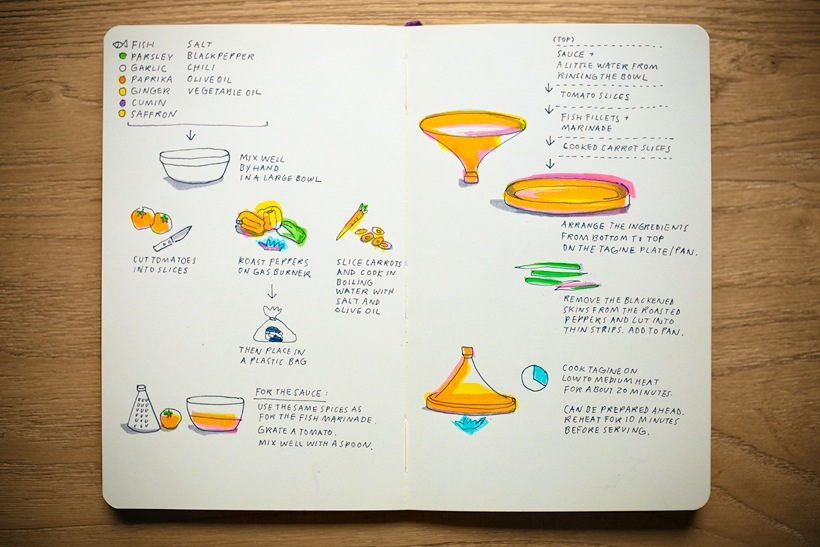 FISH
PARSLEY
GARLIC
PAPRIKA
GINGER
CUMIN
SAFFRON
SALT
BLACK PEPPER
CHILI
OLIVE OIL
VEGETABLE OIL
MIX WELL
BY HAND
IN A LARGE BOWL
CUT TOMATOES
INTO SLICES
ROAST PEPPERS
ON GAS BURNER
SLICE CARROTS
AND COOK IN
BOILING
WATER WITH
SALT AND
OLIVE OIL
THEN PLACE IN
A PLASTIC BAG
FOR THE SAUCE:
USE THE SAME SPICES AS
FOR THE FISH MARINADE.
GRATE A TOMATO.
MIX WELL WITH A SPOON.
(TOP)
SAUCE +
A LITTLE WATER FROM
RINSING THE BOWL
TOMATO SLICES
FISH FILLETS +
MARINADE
COOKED CARROT SLICES
ARRANGE THE INGREDIENTS
FROM BOTTOM TO TOP
ON THE TAGINE PLATE/PAN.
REMOVE THE BLACKENED
SKINS FROM THE ROASTED
PEPPERS AND CUT INTO
THIN STRIPS. ADD TO PAN.
COOK TAGINE ON
LOW TO MEDIUM HEAT
FOR ABOUT 20 MINUTES.
CAN BE PREPARED AHEAD.
REHEAT FOR 10 MINUTES
BEFORE SERVING.